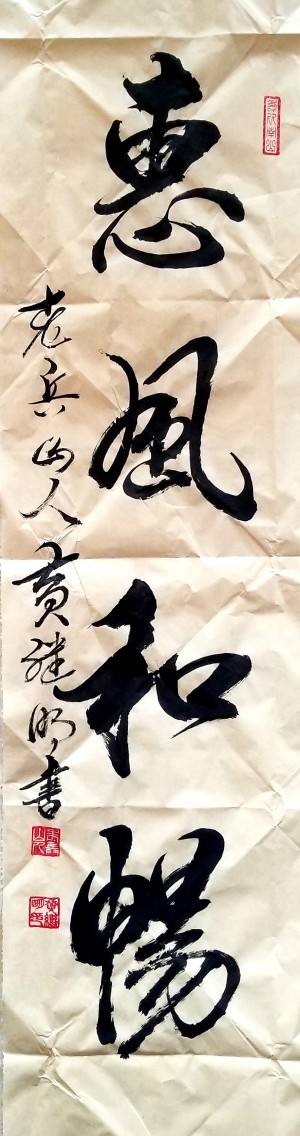 惠風和暢
老兵山人黄继明書